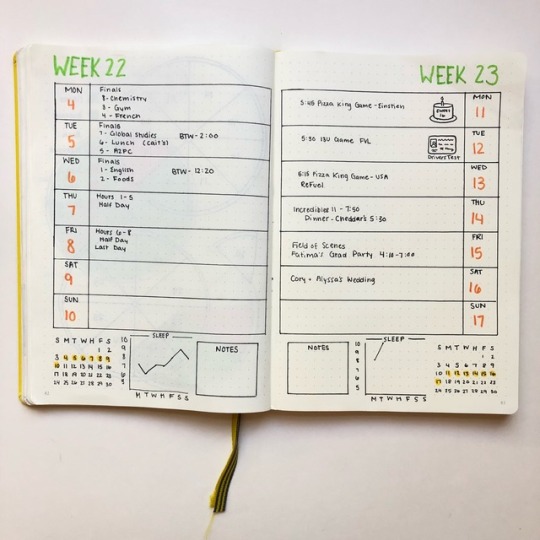 WEEK 22
MON
4
Finals
8-Chemistry
3-Gym
4-French
TUE
5
Finals
7-Global Studies BTW-2:00
6-Lunch (Cait's)
5-A2PC
WED
6
Finals
1-English BTW-12:20
2-Foods
THU
7
Hours 1-5
Half Day
FRI
8
Hours 6-8
Half Day
Last Day
SAT
9
SUN
10
S M T W H F S
1 2
3 4 5 6 7 8 9
10 11 12 13 14 15 16
17 18 19 20 21 22 23
24 25 26 27 28 29 30
SLEEP
10
9
8
7
6
5
M T W H F S S
NOTES
WEEK 23
5:45 Pizza King Game-Einstien
SWEET
16
MON
11
5:30 13U Game FVL
Drivers Test
TUE
12
6:15 Pizza King Game-USA
ReFuel
WED
13
Incredibles 11-7:30
Dinner-Chedders 5:30
THU
14
Field of Scenes
Fatima's Grad Party 4:10-7:00
FRI
15
Cory + Alyssa's Wedding
SAT
16
SUN
17
NOTES
SLEEP
10
9
8
7
6
5
M T W H F S S
S M T W H F S
1 2
3 4 5 6 7 8 9
10 11 12 13 14 15 16
17 18 19 20 21 22 23
24 25 26 27 28 29 30